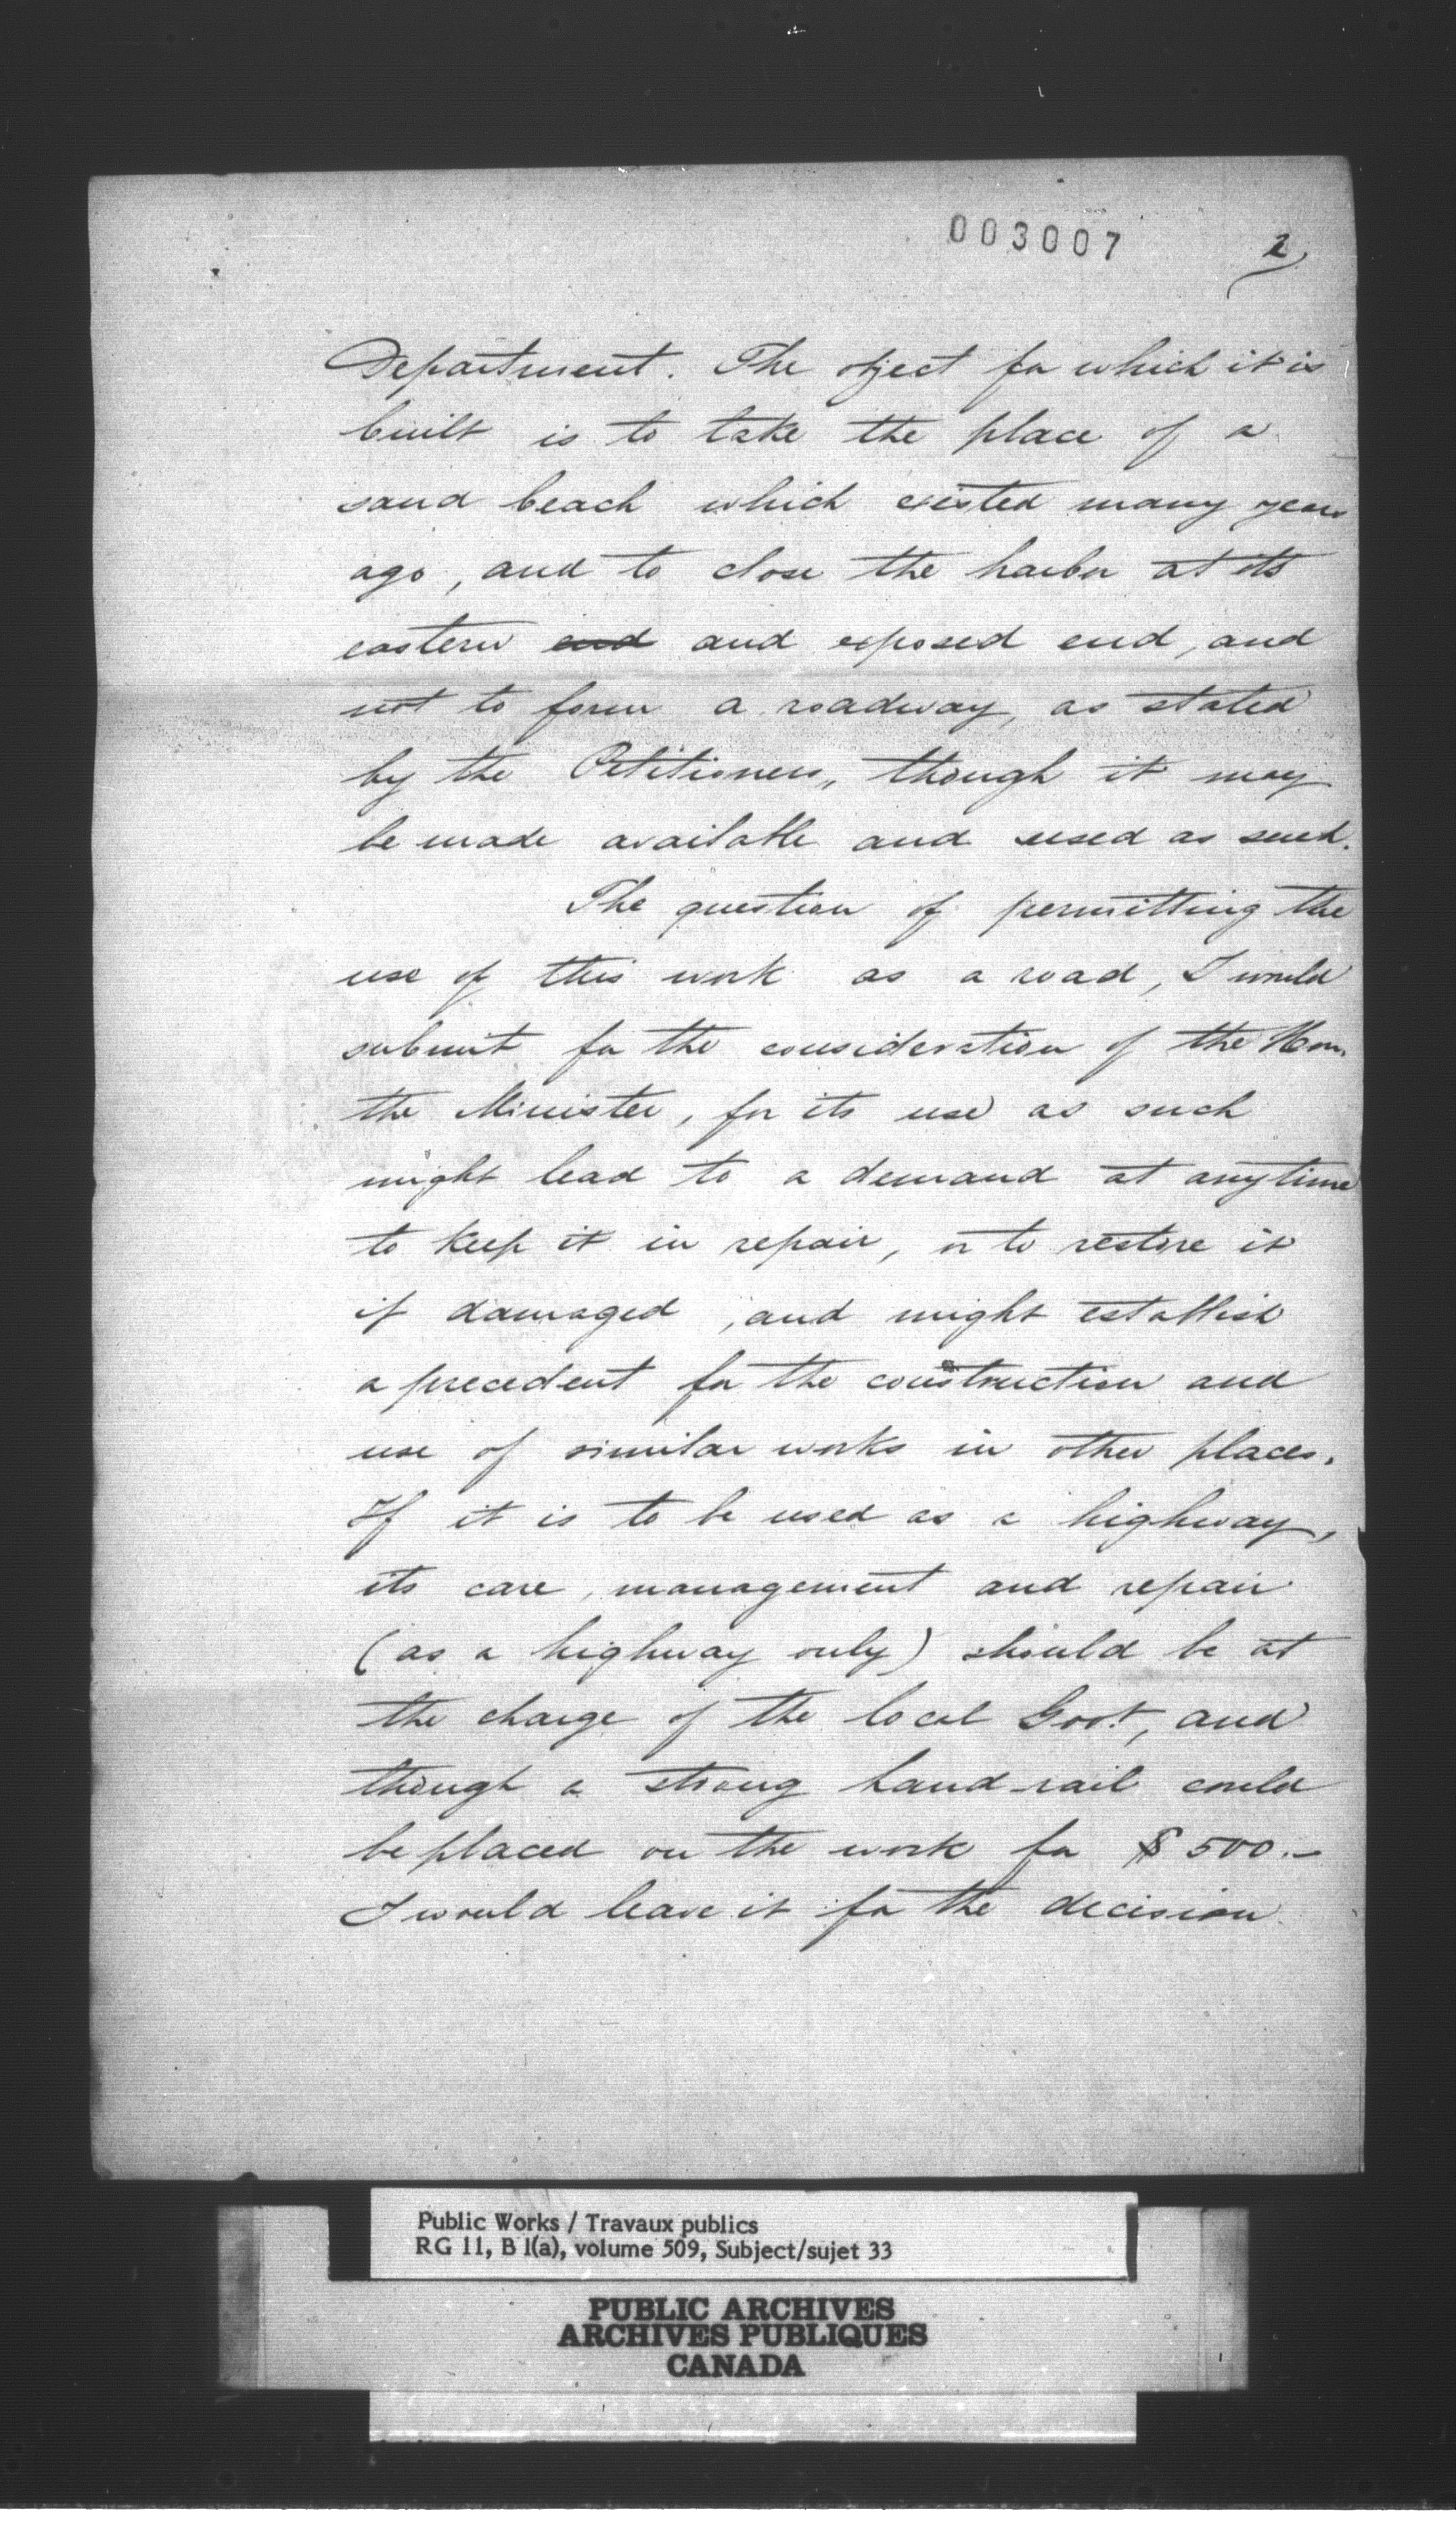 003007
2
Department. The object for which it is
built is to take the place of a
sand beach which existed many years
ago, and to close the harbor at its
eastern end and exposed end, and
not to form a roadway, as stated
by the Petitioners, though it may
be made available and used as such.
The question of permitting the
use of this work as a road, I would
submit for the consideration of the Hon.
the Minister, for its use as such
might lead to a demand at anytime
to keep it in repair, or to restore it
if damaged, and might establish
a precedent for the construction and
use of similar works in other places.
If it is to be used as a highway,
its care, management and repair
(as a highway only) should be at
the charge of the local Govt, and
though a strong hand-rail could
be placed on the work for $500.—
I would leave it for the decision
Public Works / Travaux publics
RG 11, B 1(a), volume 509, Subject/sujet 33
PUBLIC ARCHIVES
ARCHIVES PUBLIQUES
CANADA